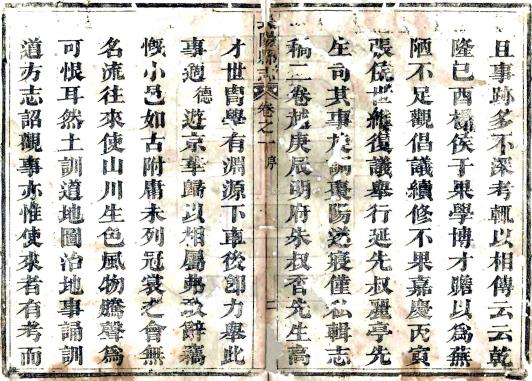 且事跡多不深考輒以相傳云云乾
隆己酉楊侯于果學博才贍以為蕪
陋不足觀倡議續修不果嘉慶丙寅
張侯世維復議舉行延先叔麗亭先
生司其事論陽寢僅私輯志
稿二卷越庚辰明府朱叔先生高
陽縣志 卷之一 序 二
才世胄學有淵源下車後卽力舉此
事適德遊京華歸以相屬敢辭竊
慨小邑如古附庸未列冠裳之會無
名流往來使山川生色風物騰聲為
可恨耳然土訓道地圖治地事誦訓
道方志詔觀事亦惟使來者有考而